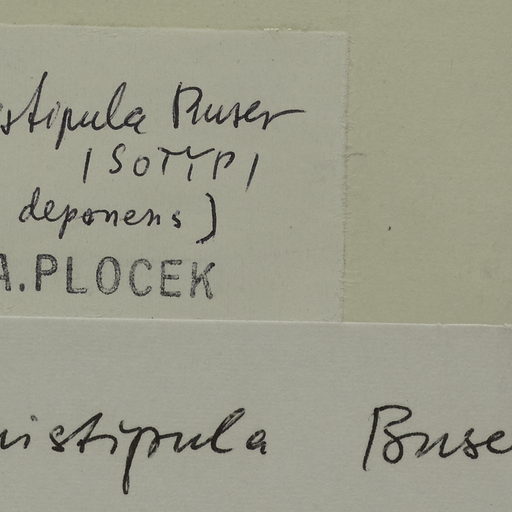 stipula Buser
ISOTYPI
deponens)
A.PLOCEK
nistipula Buse